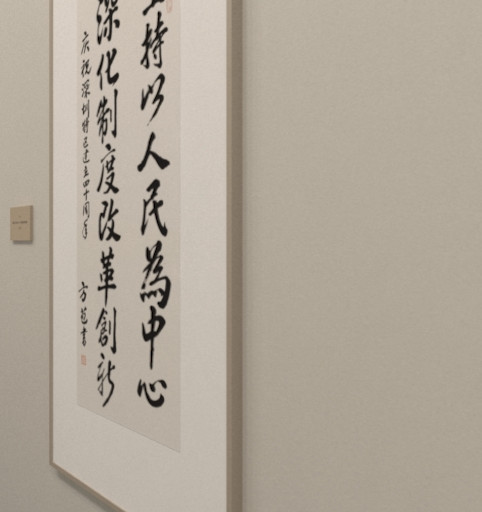 持以人民為中心
深化制度改革創新
庆祝深圳特区建立四十周年
方楚書